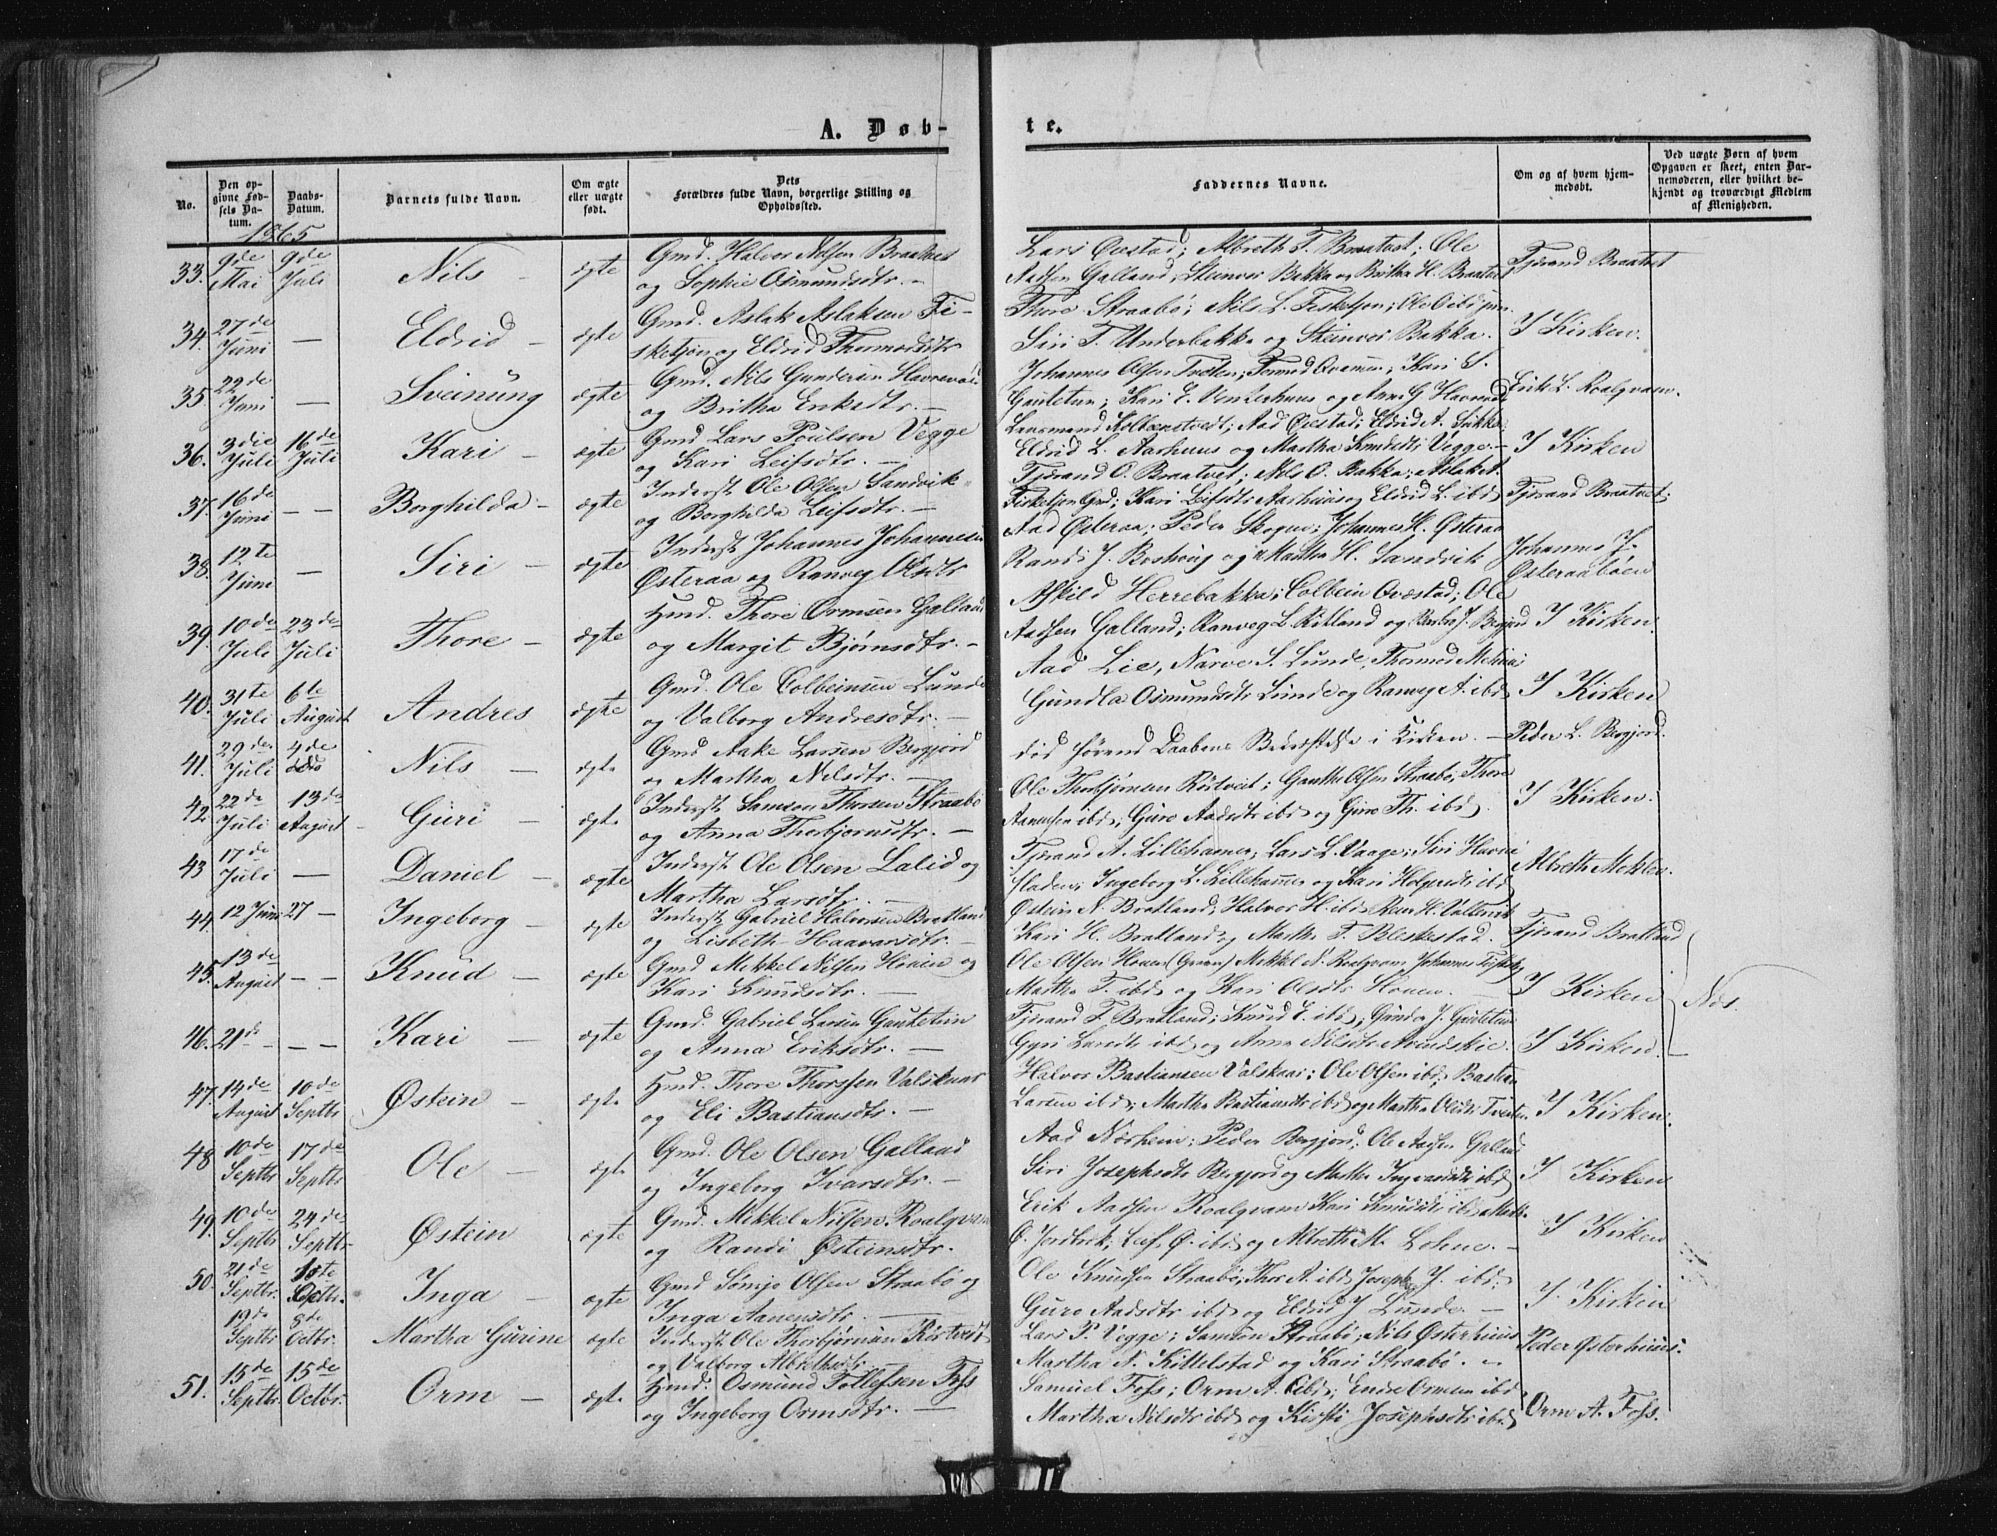 A. Døb-
te.
No.
Den opgivne Fødsels Datum.
Daabs-Datum.
Barnets fulde Navn.
Om ægte eller uægte født.
Dets Forældres fulde Navn, borgerlige Stilling og Opholdssted.
Faddernes Navne.
Om og af hvem hjemmedøbt.
Ved uægte Børn af hvem Opgaven er skeet, enten Barnemoderen, eller hvilket bekjendt og troværdigt Medlem af Menigheden.
1865
33. 9de Mai 9de Juli Nils – ægte Gmd. Halvor Nilsen Braatvet
og Sophie Osmundsdtr. –
Lars Ovestad; Albreth T. Braatvet; Ole
Aadsen Galland; Steinver Bakka og Britha H. Braatvet
Tjerand Braatvet
34. 27de Juni – Eldrid – ægte Gmd. Aslak Aslaksen Fi-
sketjøn og Eldrid Thormodsdtr
Thore Straabø; Nils L. Fisketjøn; Ole O ibd
Siri T. Underbakke og Steinver Bakka.
I Kirken.
35 29de Juni – Sveinung ægte Gmd. Nils Gundersen Havrevold
og Britha Eriksdtr. –
Johannes Olsen Tveten; Kari S.
Gautetun; Kari E. og Anna G. Havrevold
Erik L. Roalqvam.
36. 3die Juli 16de Juli Kari – ægte Gmd Lars Poulsen Vegge
og Kari Leifsdtr. –
Lensmand Kolbenstvedt; Aad Ovestad; Eldrid A.
Eldrid L. Aarhuus og Martha Knudsdtr Vegge. –
I Kirken
37. 16de Juni – – Borghilda – ægte Inderst Ole Olsen Sandvik
og Borghilda Leifsdtr. –
Tjerand O. Braatvet; Nils O. Bakka; Aslak A.
Fisketjøn Gmd; Kari Leifsdtr Aarhuus og Eldrid L. ibd
Tjerand Braatvet;
38. 12te Juni – Siri – ægte Inderst Johannes Johannesen
Østeraa og Ranveg Olsdtr
Aad Østeraa; Peder Skogen; Johannes H. Østeraa
Randi J. og Martha H. Sandvik
Johannes J. Østeraabøen
39. 10de Juli 23de Juli Thore – ægte Hmd. Thore Ormsen Galland
og Margit Bjørnsdtr. –
Askild Herrebakka; Colbein Ovestad; Ole
Aadsen Galland; Ranveg L. Ritland og J. Bergjord
I Kirken.
40. 31te Juli 6te August Andres – ægte Gmd. Ole Colbeinsen Lunde
og Valborg Andresdtr. –
Aad Lie, Narve S. Lunde, Thormod
Gundla Osmundsdtr Lunde og Ranveg A. ibd
I Kirken
41. 29de Juli 4de Nils – ægte Gmd Aake Larsen Bergjord
og Martha Nilsdtr. –
død førend Daabens Bekræftelse i Kirken. –
Peder L. Bergjord.
42. 22de Juli 13de August – Guri – ægte Inderst Samson Thorsen Straabø
og Anna Thorbjørnsdtr. –
Ole Thorbjørnsen Røstveit; Gauthe Olsen Straabø; Thore
Aanensen ibd; Guro Aadsdtr ibd og Guro Th. ibd.
I Kirken.
43 17de Juli – Daniel – ægte Inderst Ole Olsen Lalid og
Martha Larsdtr. –
Tjerand A. Lillehamer; Lars L. Vaage; Siri
Ingeborg L. Lillehamer og Kari Holgersdtr ibd
Albreth Mehlen.
44. 12 Juni 27 – Ingeborg – ægte Inderst Gabriel Halvorsen Bratland
og Lisbeth Haavarsdtr. –
Østein N. Bratland; Halvor H. ibd;
Kari H. Bratland og Martha T. Fleskestad.
Tjerand Bratland
45. 13de August – – Knud – ægte Gmd Mekkel Nilsen Hoven og
Kari Knudsdtr. –
Ole Olsen Hoven Mekkel N. Roalqvam Johannes
Martha T. ibd og Kari Olsdtr Hoven. –
I Kirken
46. 21de – – Kari – ægte Gmd. Gabriel Larsen Gautetun
og Anna Eriksdtr. –
Tjerand T. Bratland; Knud E. ibd; J. Gautetun
Guri Larsdtr ibd og Anna Nilsdtr
I Kirken. –
47. 14de August 10de Septbr Østein – ægte Hmd. Thore Thorssen Valskaar
og Eli Bastiansdtr. –
Halvor Bastiansen Valskaar; Ole Olsen ibd; Bastian
Larsen ibd; Martha Bastiansdtr ibd og Martha Olsdtr
I Kirken.
48 10de Septbr 17de Septbr Ole – ægte Gmd. Ole Olsen Galland
og Ingeborg Ivarsdtr. –
Aad Norheim; Peder Bergjord; Ole Aadsen Galland
Siri Josephsdtr Bergjord og Martha ibd
I Kirken
49. 10de Septbr 24de Septbr. Østein ægte Gmd. Mekkel Nilsen Roalqvam
og Randi Østeinsdtr.
Erik Aadsen Roalqvam Kari Knudsdtr ibd
Ø. Jordbrek; Leif Ø. ibd og Albreth M. Lohne. –
I Kirken
50. 21de Septbr. Inga – ægte Gmd Sømje Olsen Straabø og
Inga Aanensdtr. –
Ole Knudsen Straabø; Thor A. ibd Joseph J. ibd.
Guro Aadsdtr ibd og Eldrid J Lunde –
I Kirken
19de Septbr 8de Octbr. Martha Gurine ægte Inderst Ole Thorbjørnsen Røstveit
og Valborg Albrethsdtr.
Lars P. Vegge; Samson Straabø; Nils Østerhuus
Martha N. Kittelstad og Kari Straabø. –
Peder Østerhuus.
51. 15de Septbr. 15de Octbr. Orm – ægte Hmd. Osmund Tollefsen Foss
og Ingeborg Ormsdtr. –
Samuel Foss; Orm A. ibd; Endre Ormsen ibd
Martha Nilsdtr ibd og Kirsti Josephsdtr ibd
Orm A. Foss.